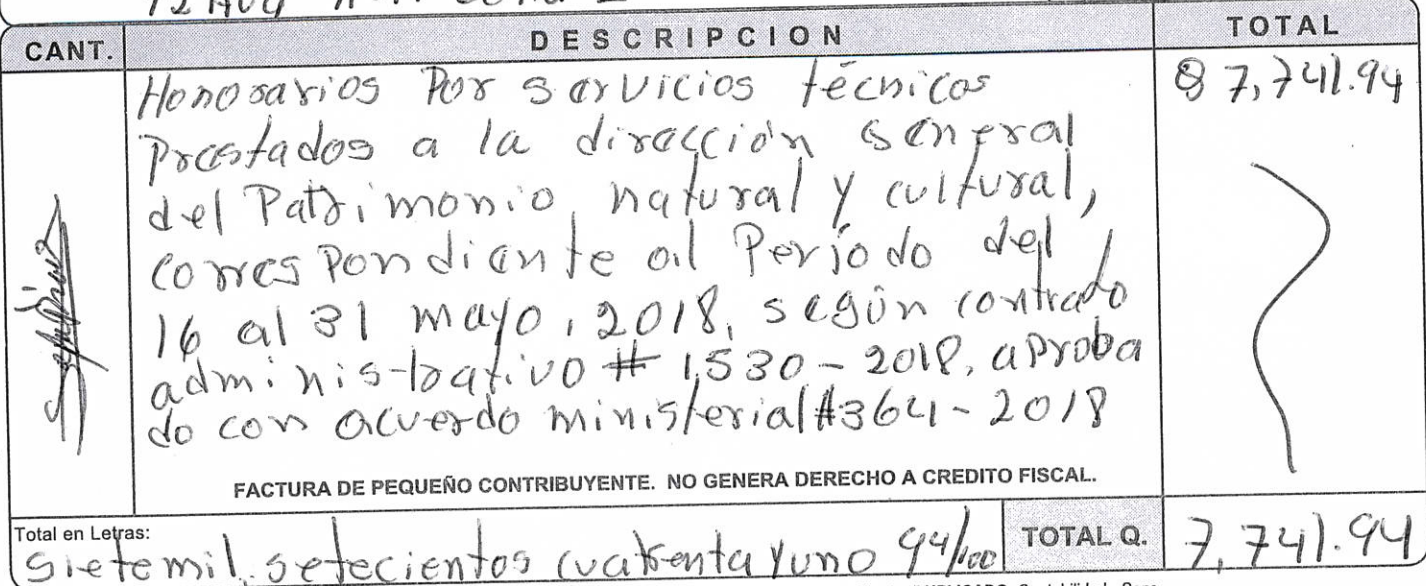 12 Av
CANT. DESCRIPCION TOTAL
Honorarios Por servicios técnicos Q 7,741.94
Prestados a la dirección general
del Patrimonio, natural y cultural,
correspondiente al Período del
16 al 31 mayo, 2018, según contrato
administrativo # 1,530-2018, aproba
do con acuerdo ministerial #364-2018
FACTURA DE PEQUEÑO CONTRIBUYENTE. NO GENERA DERECHO A CREDITO FISCAL.
Total en Letras:
Siete mil setecientos cuarenta y uno 94/100 TOTAL Q. 7,741.94